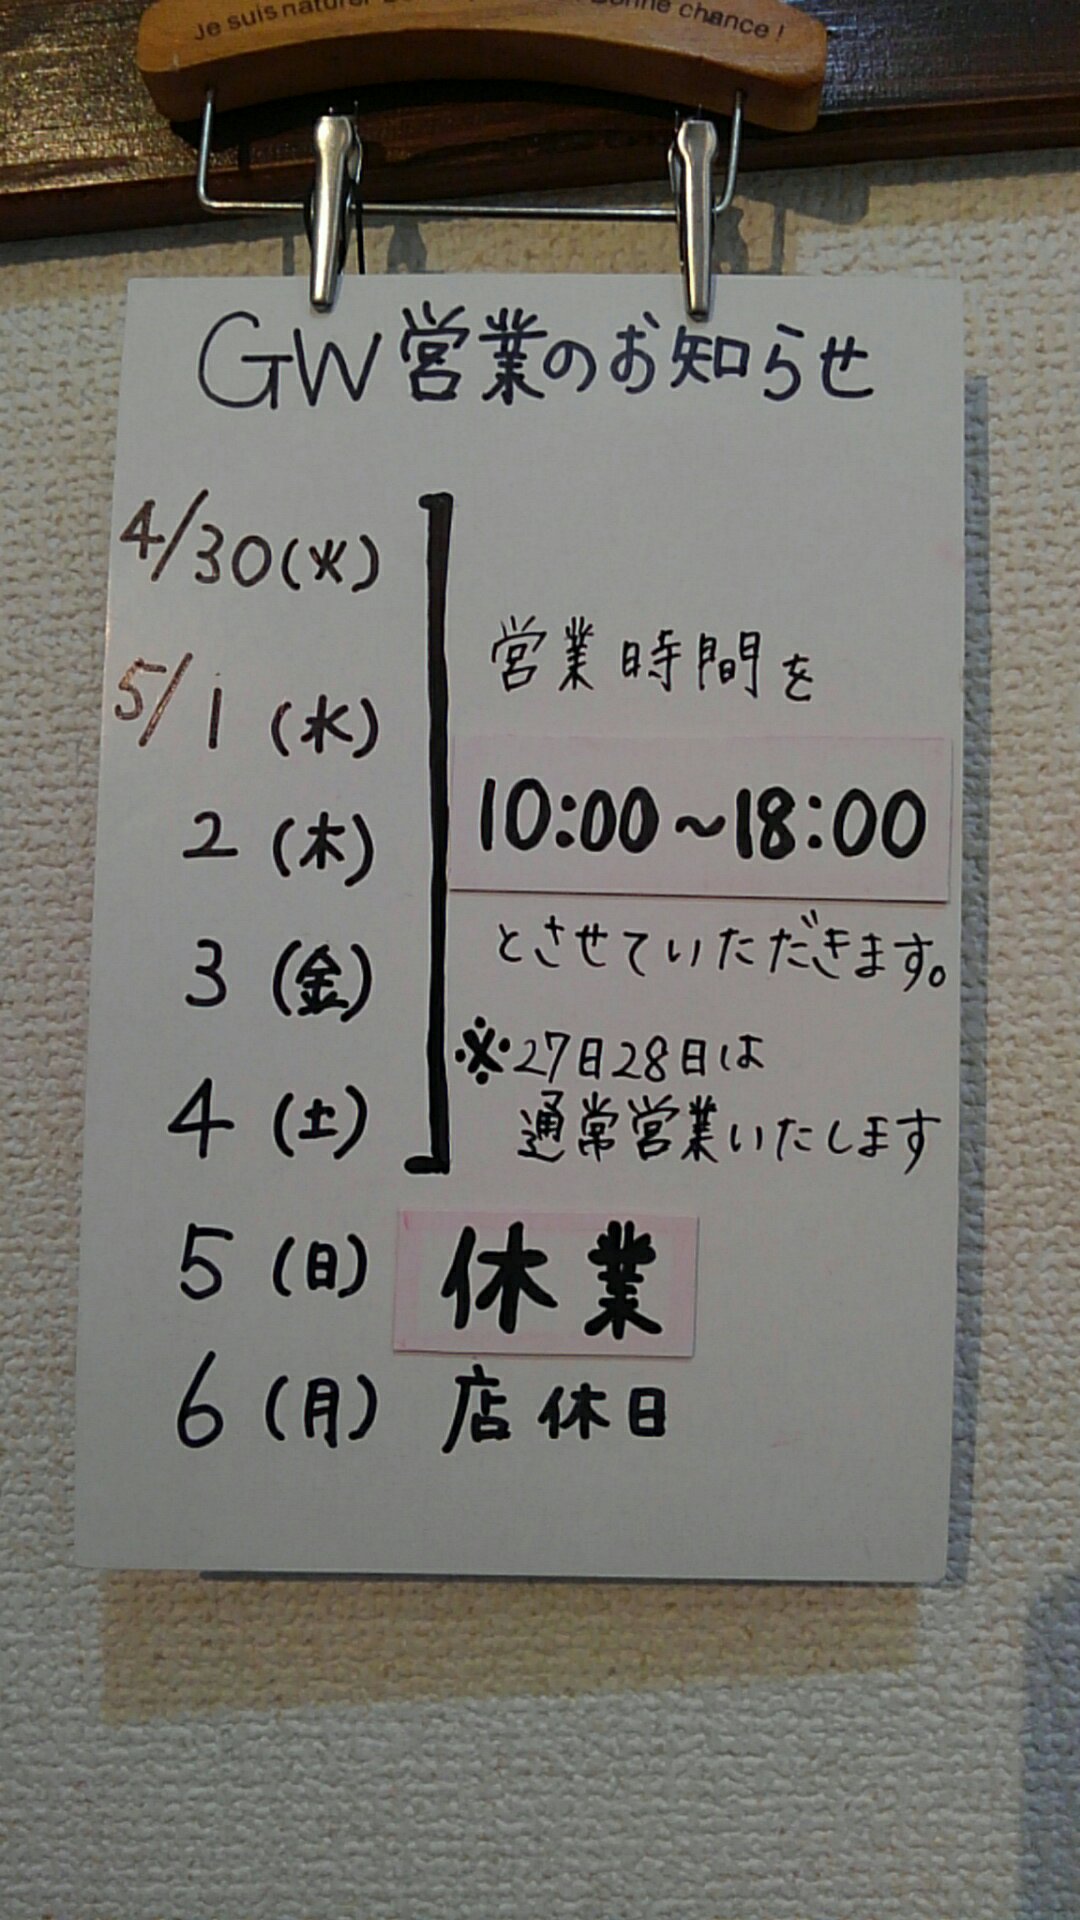 Je suis naturel
Bonne chance !
GW営業のお知らせ
4/30(火)
5/1(水)
2(木)
3(金)
4(土)
営業時間を
10:00~18:00
とさせていただきます。
※27日28日は
通常営業いたします
5(日) 休業
6(月) 店休日